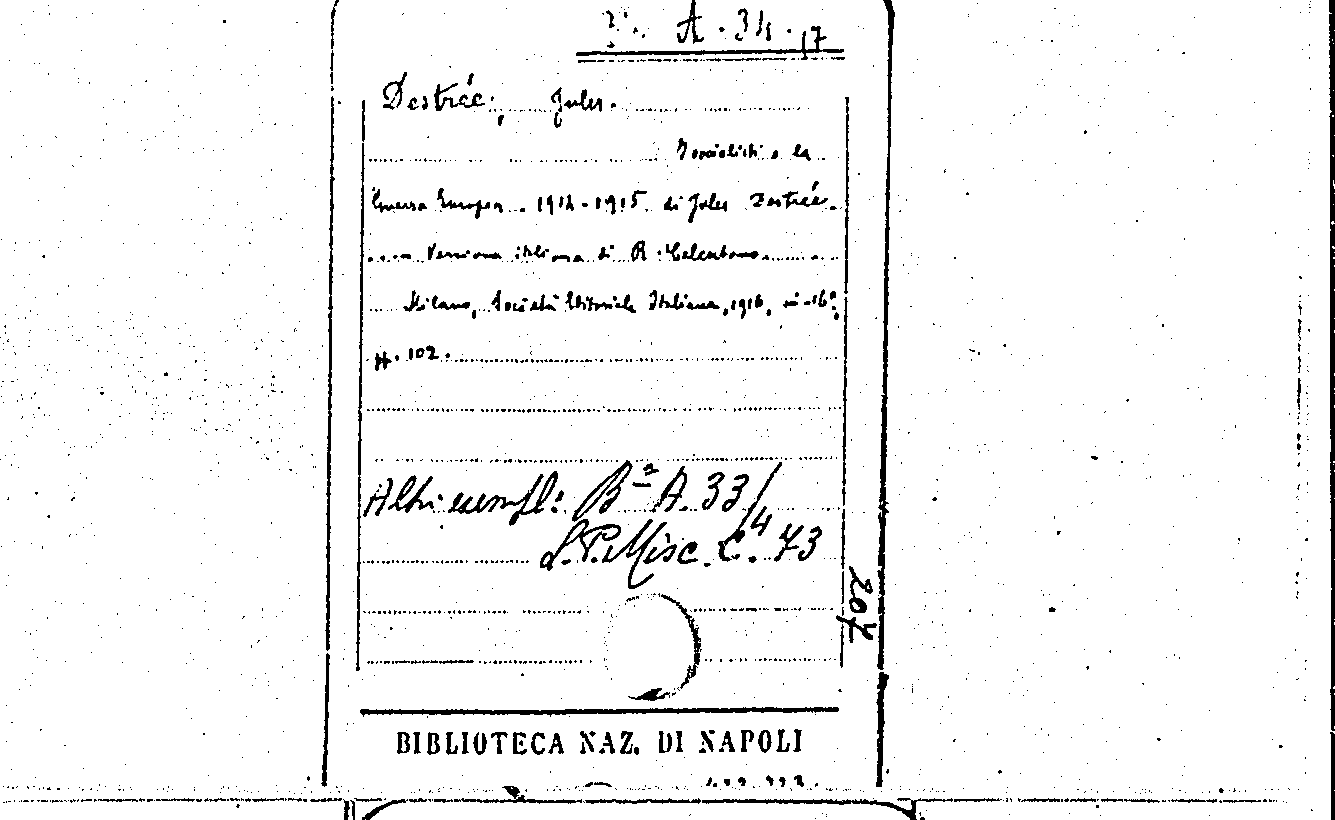 A. 34. 17
Destrée, Jules.
I socialisti e la
Guerra Europea. 1914-1915 di Jules Destrée.
.... Versione italiana di R.
Milano, Società Editoriale Italiana, 1916, in-16°,
pp. 102.
Altri esempl: B² A. 33/4
L.P. Misc. C. 73
207
BIBLIOTECA NAZ. DI NAPOLI